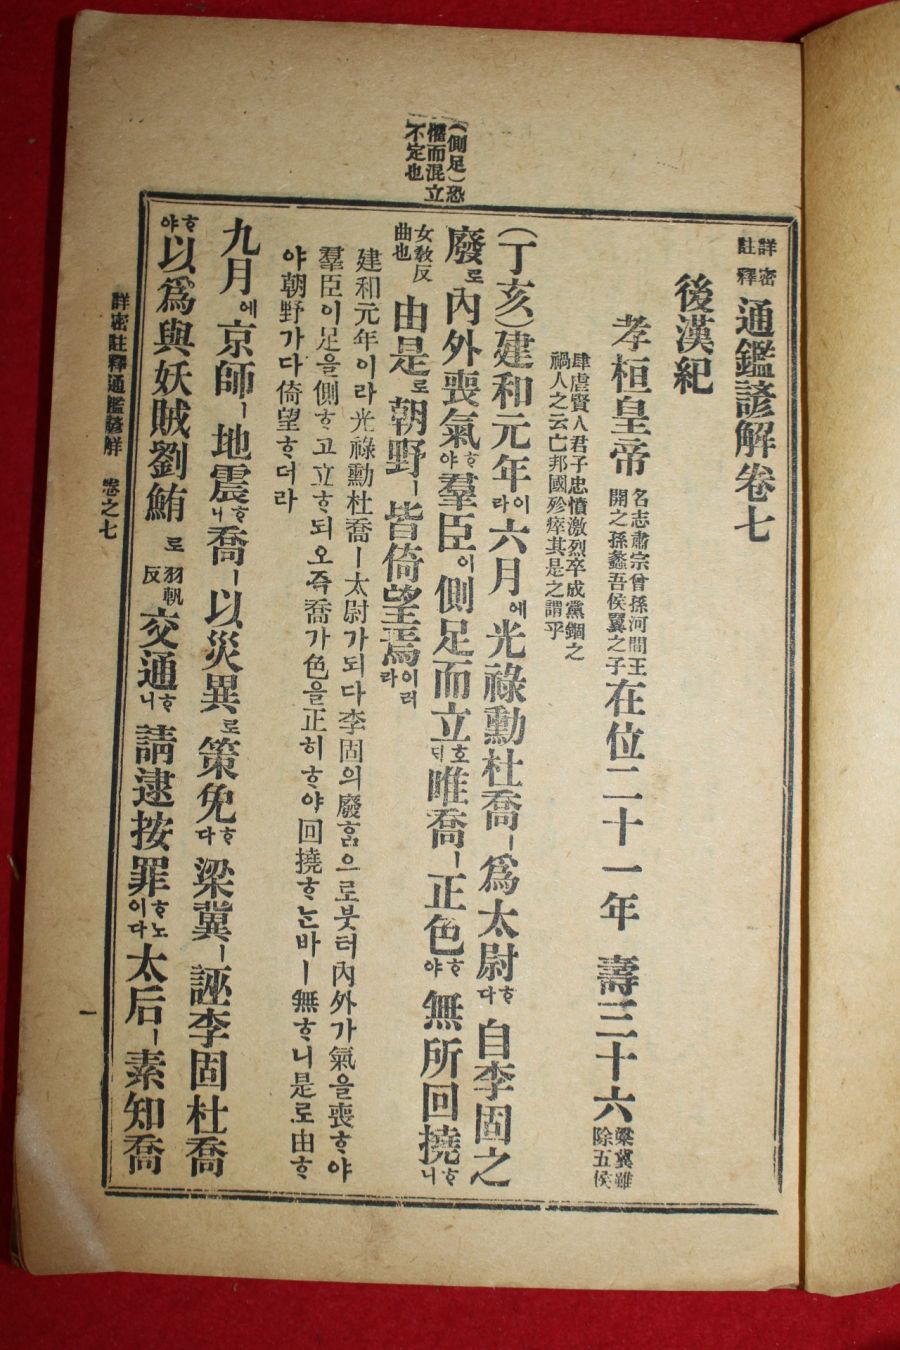 (側足)恐
懼而混立
不定也
詳密
註釋
通鑑諺解卷七
後漢紀
孝桓皇帝
名志肅宗曾孫河間王
開之孫蠡吾侯翼之子
在位二十一年 壽三十六
梁冀雖
除五侯
肆虐賢人君子忠憤激烈卒成黨錮之
禍人之云亡邦國殄瘁其是之謂乎
(丁亥)建和元年이라六月에光祿勳杜喬ㅣ爲太尉ᄒᆞ다 自李固之
廢로內外喪氣ᄒᆞ야羣臣이側足而立호ᄃᆡ唯喬ㅣ正色ᄒᆞ야 無所回撓ᄒᆞ니
女敎反
曲也
由是로朝野ㅣ皆倚望焉이러라
建和元年이라光祿勳杜喬ㅣ太尉가되다李固의廢홈으로붓터內外가氣을喪ᄒᆞ야
羣臣이足을側ᄒᆞ고立ᄒᆞ되오즉喬가色을正히ᄒᆞ야回撓ᄒᆞᄂᆞᆫ바ㅣ無ᄒᆞ니是로由ᄒᆞ
야朝野가다倚望ᄒᆞ더라
九月에京師ㅣ地震ᄒᆞ니喬ㅣ以災異로策免ᄒᆞ다 梁冀ㅣ誣李固杜喬
ᄒᆞ야以爲與妖賊劉鮪로
羽軌
反
交通ᄒᆞ니 請逮按罪ᄒᆞ노이다太后ㅣ素知喬
詳密註釋通鑑諺解 卷之七